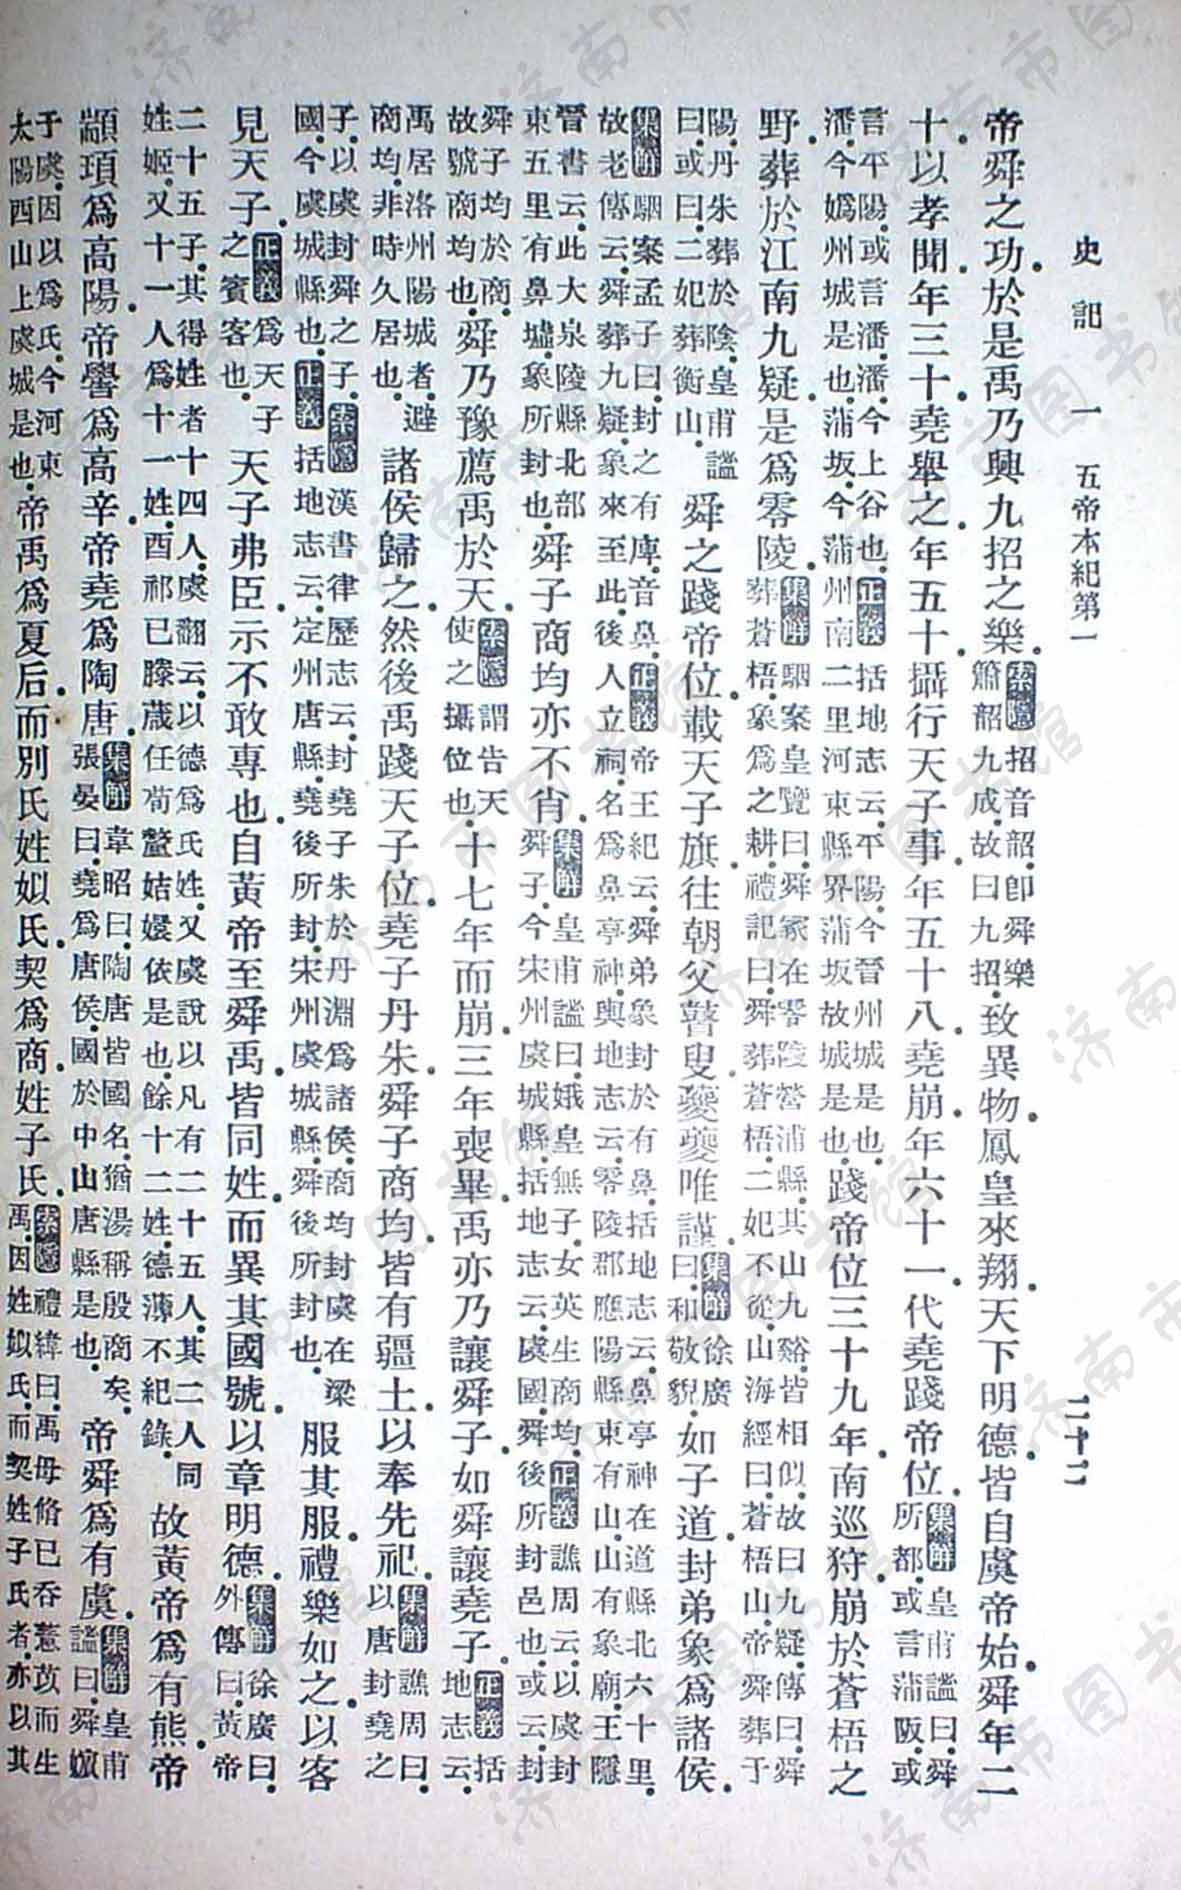 史記 一 五帝本紀第一 二十二
帝舜之功。於是禹乃興九招之樂。索隱招音韶。即舜樂簫韶九成。故曰九招。致異物。鳳皇來翔。天下明德。皆自虞帝始。舜年二
十。以孝聞。年三十。堯舉之。年五十。攝行天子事。年五十八。堯崩。年六十一。代堯踐帝位。集解皇甫謐曰。舜所都。或言蒲阪。或
言平陽。或言潘。潘今上谷也。正義括地志云。平陽。今晉州城是也。潘。今媯州城是也。蒲坂。今蒲州南二里河東縣界蒲坂故城是也。踐帝位三十九年。南巡狩。崩於蒼梧之
野。葬於江南九疑。是爲零陵。集解駰案皇覽曰。舜冢在零陵營浦縣。其山九谿。皆相似。故曰九疑。傳曰。舜葬蒼梧。象爲之耕。禮記曰。舜葬蒼梧。二妃不從。山海經曰。蒼梧山。帝舜葬于
陽。丹朱葬於陰。皇甫謐曰。或曰。二妃葬衡山。舜之踐帝位。載天子旗。往朝父瞽叟。夔夔唯謹。集解徐廣曰。和敬貌。如子道。封弟象爲諸侯。
集解駰案孟子曰。封之有庳。音鼻。正義帝王紀云。舜弟象封於有鼻。括地志云。鼻亭神在道縣北六十里。故老傳云。舜葬九疑。象來至此。後人立祠。名爲鼻亭神。輿地志云。零陵郡應陽縣東有山。山有象廟。王隱
晉書云。此大泉陵縣北部東五里有鼻墟。象所封也。舜子商均亦不肖。集解皇甫謐曰。娥皇無子。女英生商均。正義譙周云。以虞封舜子。今宋州虞城縣。括地志云。虞國。舜後所封邑也。或云。封
舜子均於商。故號商均也。舜乃豫薦禹於天。索隱謂告天使之攝位也。十七年而崩。三年喪畢。禹亦乃讓舜子。如舜讓堯子。正義括地志云。
禹居洛州陽城者。避商均。非時久居也。諸侯歸之。然後禹踐天子位。堯子丹朱。舜子商均。皆有疆土。以奉先祀。集解譙周曰。以唐封堯之
子。以虞封舜之子。索隱漢書律歷志云。封堯子朱於丹淵爲諸侯。商均封虞。在梁國。今虞城縣也。正義括地志云。定州唐縣。堯後所封。宋州虞城縣。舜後所封也。服其服。禮樂如之。以客
見天子。正義爲天子之賓客也。天子弗臣。示不敢專也。自黃帝至舜禹。皆同姓。而異其國號。以章明德。集解徐廣曰。外傳曰。黃帝
二十五子。其得姓者十四人。虞翻云。以德爲氏姓。又虞說以凡有二十五人。其二人同姓姬。又十一人爲十一姓。酉祁己滕葴任荀釐姞嬛依是也。餘十二姓。德薄不紀錄。故黃帝爲有熊。帝
顓頊爲高陽。帝嚳爲高辛。帝堯爲陶唐。集解韋昭曰。陶唐皆國名。猶湯稱殷商矣。張晏曰。堯爲唐侯。國於中山唐縣是也。帝舜爲有虞。集解皇甫謐曰。舜嬪
于虞。因以爲氏。今河東太陽西山上虞城是也。帝禹爲夏后。而別氏。姓姒氏。契爲商。姓子氏。索隱禮緯曰。禹母脩己吞薏苡而生禹。因姓姒氏。而契姓子氏者。亦以其